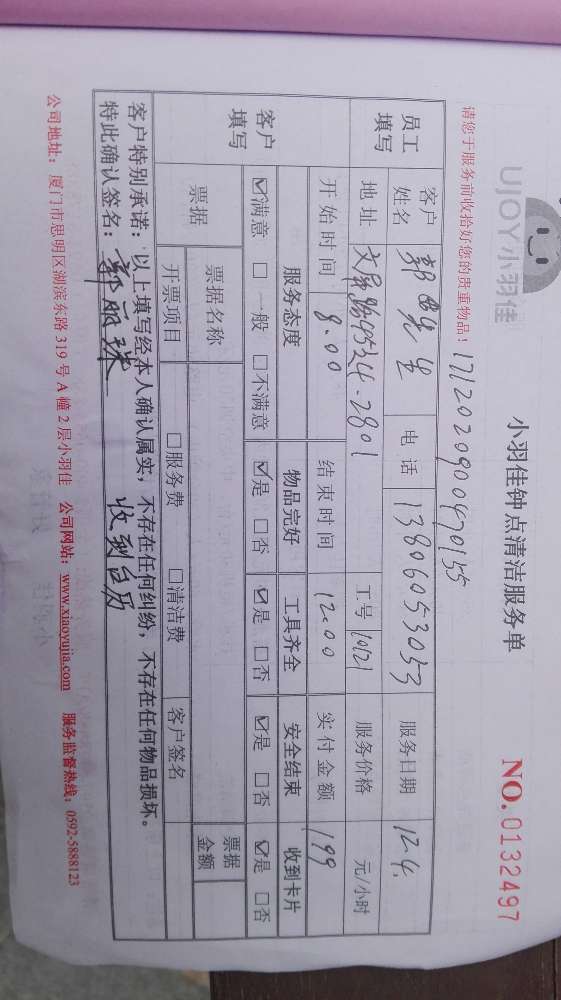 UJOY小羽佳
小羽佳钟点清洁服务单
NO.0132497
请您于服务前收拾好您的贵重物品！
1712020900470155
员工填写
客户姓名 郭先生 电话 13806053053 服务日期 12.4.
地址 文屏路95号24-2801 工号 10121 服务价格 元/小时
开始时间 8.00 结束时间 12.00 实付金额 199
客户填写
服务态度 物品完好 工具齐全 安全结束 收到卡片
☑满意 □一般 □不满意 ☑是 □否 ☑是 □否 ☑是 □否 ☑是 □否
票据 票据名称 票据金额
开票项目 □服务费 □清洁费 客户签名
客户特别承诺：以上填写经本人确认属实，不存在任何纠纷，不存在任何物品损坏。
特此确认签名：郭丽珠 收到台历
公司地址：厦门市思明区湖滨东路 319 号 A 幢 2 层小羽佳 公司网站：www.xiaoyujia.com 服务监督热线：0592-5888123